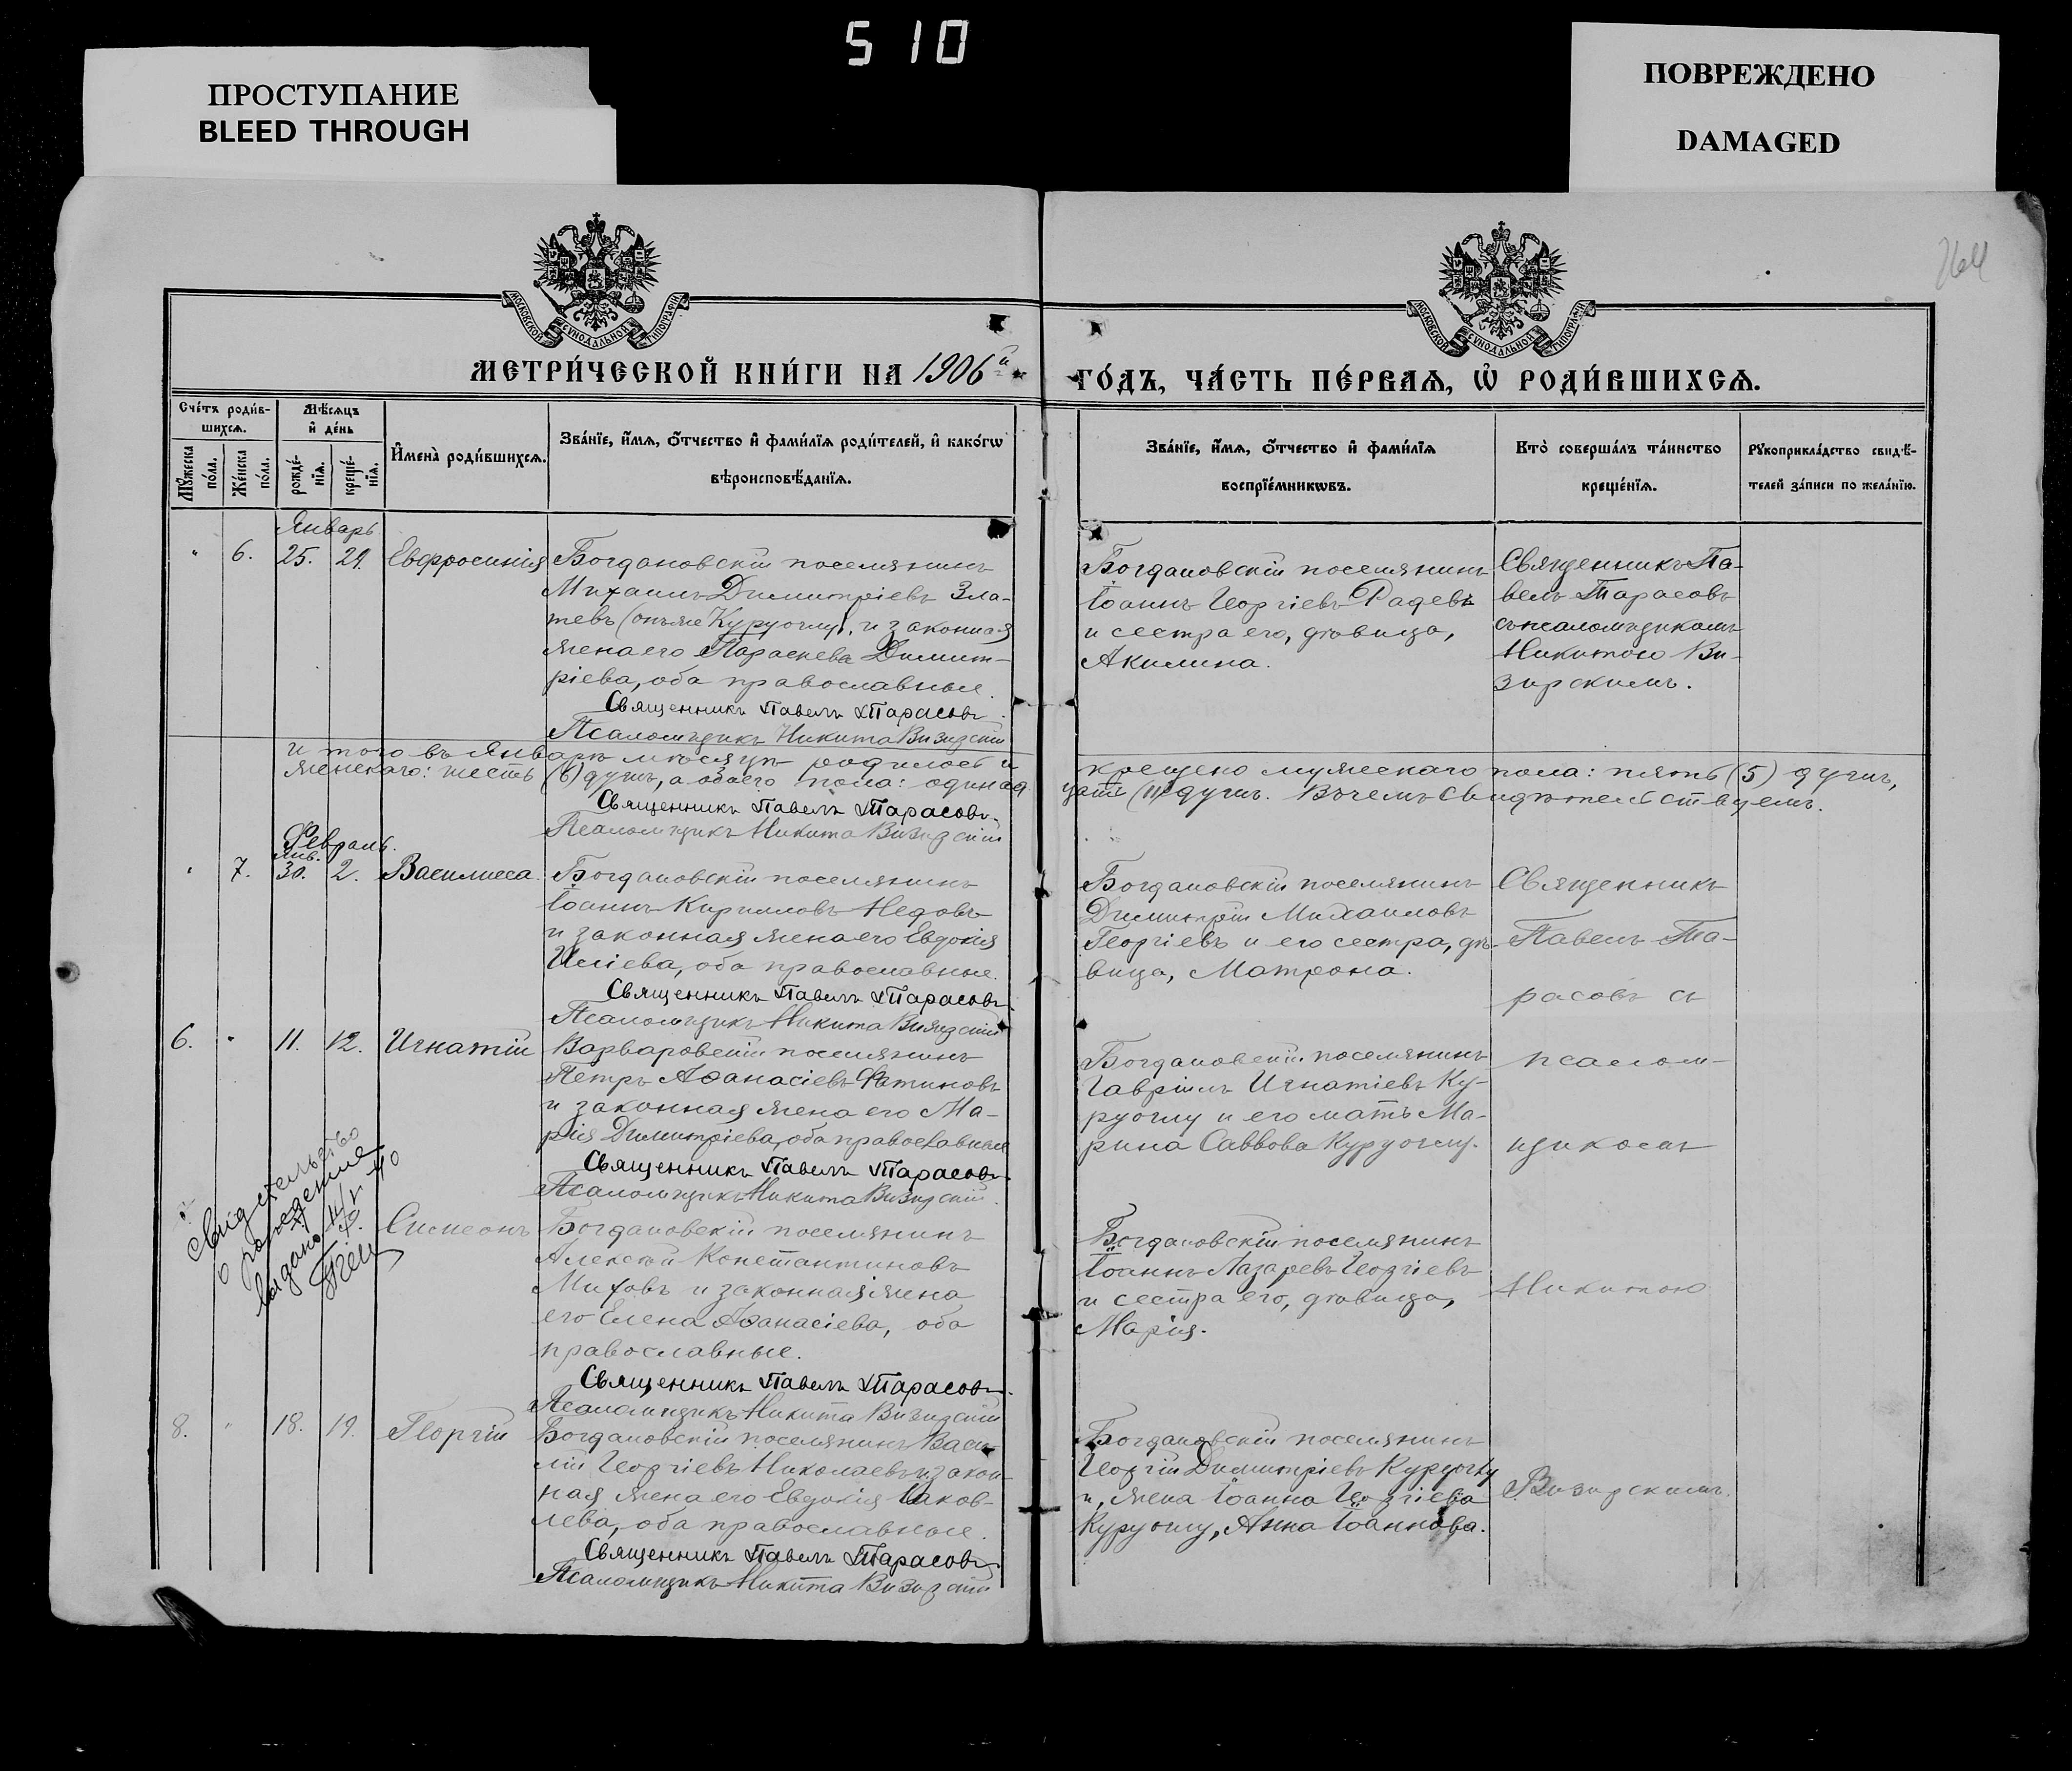 510
ПРОСТУПАНИЕ
BLEED THROUGH
ПОВРЕЖДЕНО
DAMAGED
МОСКОВСКОЙ СѴНОДАЛЬНОЙ ТИПОГРАФІИ
МОСКОВСКОЙ СѴНОДАЛЬНОЙ ТИПОГРАФІИ
МЕТРИ́ЧЕСКОЙ КНИ́ГИ НА 1906й
ГО́ДЪ, ЧА́СТЬ ПЕ́РВАѦ, Ѡ҆ РОДИ́ВШИХСѦ.
Сче́тъ роди́в-
шихсѧ.
Мꙋ́жеска по́ла.
Же́нска по́ла.
Мѣ́сѧцъ
и҆ де́нь
рожде́-нїѧ.
креще́-нїѧ.
И҆мена̀ роди́вшихсѧ.
Зва́нїе, и҆́мѧ, ѻ҆́тчество и҆ фами́лїѧ роди́телей, и҆ како́гѡ
вѣроисповѣ́данїѧ.
Зва́нїе, и҆́мѧ, ѻ҆́тчество и҆ фами́лїѧ
воспрїе́мникѡвъ.
Кто̀ соверша́лъ та́инство
креще́нїѧ.
Рꙋкоприкла́дство свидѣ́-
телей за́писи по жела́нїю.
Январь
" 6. 25. 29. Евфросинія
Богдановскій поселянинъ
Михаилъ Димитріевъ Зла-
тевъ (онъ же Куруоглу), и законная
жена его Параскева Димит-
ріева, оба православные.
Священникъ Павелъ Тарасовъ.
Псаломщикъ Никита Визирскій
Богдановскій поселянинъ
Іоаннъ Георгіевъ Радевъ
и сестра его, дѣвица,
Акилина.
Священникъ Па-
велъ Тарасовъ
съ псаломщикомъ
Никитою Ви-
зирскимъ.
И того въ Январѣ мѣсяцѣ родилось и крещено мужескаго пола: пять (5) душъ,
женскаго: шесть (6) душъ, а обоего пола: одинад цать (11) душъ. Въ чемъ свидѣтельствуемъ.
Священникъ Павелъ Тарасовъ.
Псаломщикъ Никита Визирскій
Февраль.
Янв.
" 7. 30. 2. Василисса.
Богдановскій поселянинъ
Іоаннъ Кирилловъ Недовъ
и законная жена его Евдокія
Иліева, оба православные.
Священникъ Павелъ Тарасовъ
Псаломщикъ Никита Визирскій
Богдановскій поселянинъ
Димитрій Михаиловъ
Георгіевъ и его сестра, дѣ-
вица, Матрона.
Священникъ
Павелъ Та-
расовъ съ
псалом-
щикомъ
Никитою
Визирскимъ.
6. " 11. 12. Игнатій
Варваровскій поселянинъ
Петръ Аѳанасіевъ Фатиновъ
и законная жена его Ма-
рія Димитріева, оба православные
Священникъ Павелъ Тарасовъ.
Псаломщикъ Никита Визирскій.
Богдановскій поселянинъ
Гавріилъ Игнатіевъ Ку-
руоглу и его мать Ма-
рина Саввова Куруоглу.
Свидетельство
о рождении
выдано
Симеонъ
Богдановскій поселянинъ
Алексѣй Константиновъ
Миховъ и законная жена
его Елена Аѳанасіева, оба
православные.
Священникъ Павелъ Тарасовъ.
Псаломщикъ Никита Визирскій
Богдановскій поселянинъ
Іоаннъ Лазаревъ Георгіевъ
и сестра его, дѣвица,
Марія.
8. " 18. 19. Георгій
Богдановскій поселянинъ Васи-
лій Георгіевъ Николаевъ и закон-
ная жена его Евдокія Іаков-
лева, оба православные.
Священникъ Павелъ Тарасовъ.
Псаломщикъ Никита Визирскій
Богдановскій поселянинъ
Георгій Димитріевъ Куруоглу
и, жена Іоанна Георгіева
Куруоглу, Анна Іоаннова.